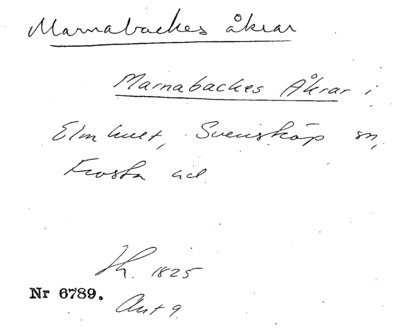 Marnabackes åkrar
Marnabackes Åkrar i
Elmhult, Svensköp sn,
Frosta hd
Kh. 1825
Nr 6789.
Akt 9